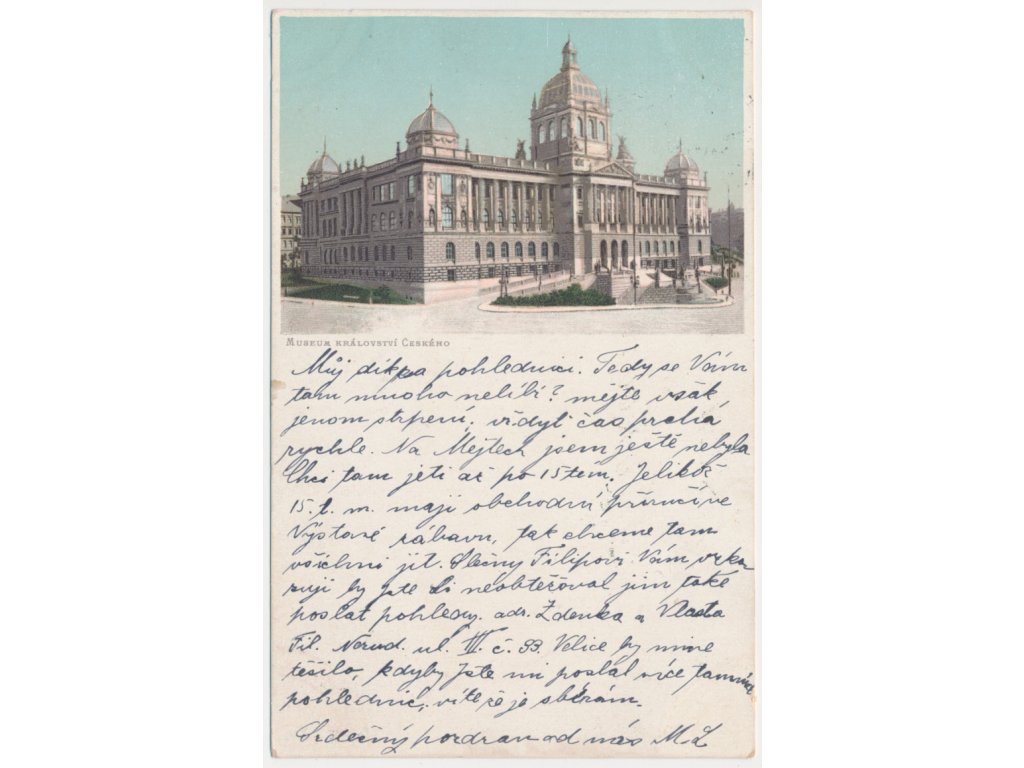 MUSEUM KRÁLOVSTVÍ ČESKÉHO
Můj dík za pohlednici. Tedy se Vám
tam mnoho nelíbí? mějte však
jenom strpení, vždyť čas prchá
rychle. Na Mejtech jsem ještě nebyla
Chci tam jeti až po 15tém. Jelikož
15. t. m. mají obchodní příručí ve
Výstavě zábavu, tak chceme tam
všichni jít. Slečny Filipovi Vám vzka
zují by jste si neobtěžoval jim také
poslat pohledy. adr. Zdenka a Vlasta
Fil. Nerud. ul. III. č. 33. Velice by mne
těšilo, kdyby jste mi poslal více tamních
pohlednic, víte že je sbírám.
Srdečný pozdrav od nás M. L